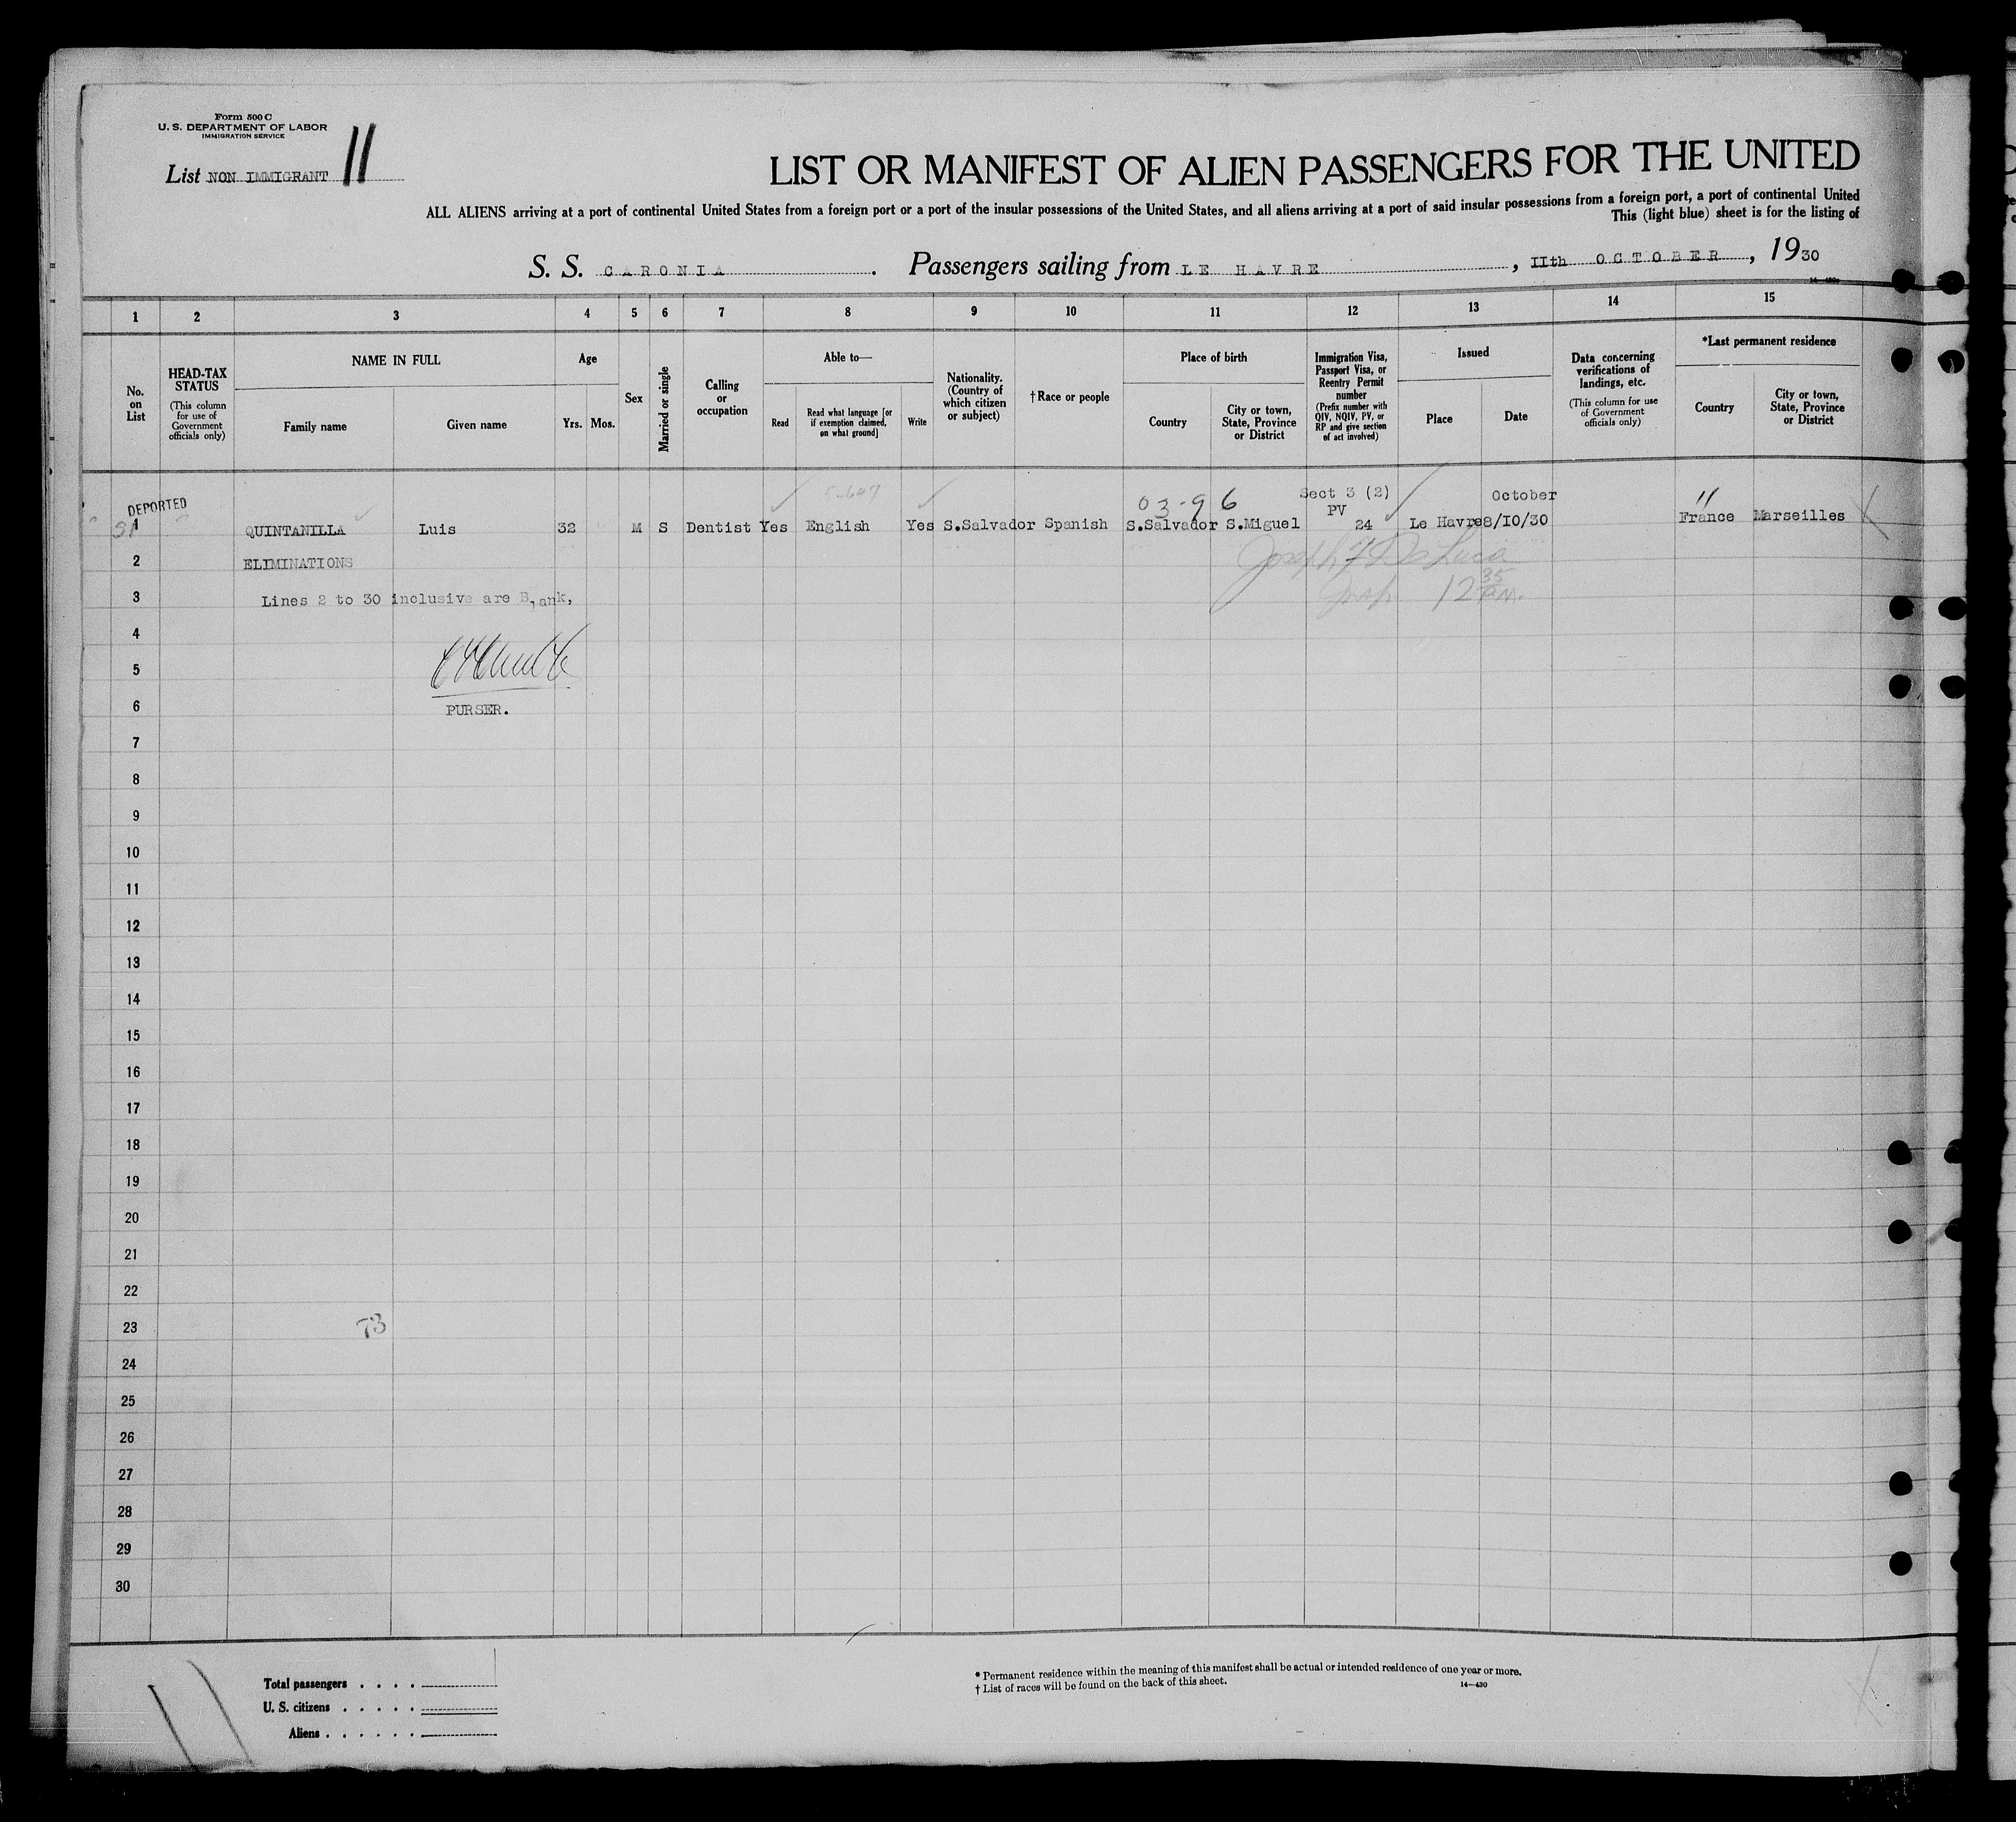 Form 500 C
U. S. DEPARTMENT OF LABOR
IMMIGRATION SERVICE
List NON IMMIGRANT 11
LIST OR MANIFEST OF ALIEN PASSENGERS FOR THE UNITED
ALL ALIENS arriving at a port of continental United States from a foreign port or a port of the insular possessions of the United States, and all aliens arriving at a port of said insular possessions from a foreign port, a port of continental United
This (light blue) sheet is for the listing of
S. S. CARONIA. Passengers sailing from LE HAVRE, IIth OCTOBER, 1930
1 2 3 4 5 6 7 8 9 10 11 12 13 14 15
No. on List
HEAD-TAX STATUS
(This column for use of Government officials only)
NAME IN FULL
Family name
Given name
Age
Yrs. Mos.
Sex
Married or single
Calling or occupation
Able to—
Read
Read what language [or if exemption claimed, on what ground]
Write
Nationality. (Country of which citizen or subject)
†Race or people
Place of birth
Country
City or town, State, Province or District
Immigration Visa, Passport Visa, or Reentry Permit number
(Prefix number with QIV, NQIV, PV, or RP and give section of act involved)
Issued
Place
Date
Data concerning verifications of landings, etc.
(This column for use of Government officials only)
*Last permanent residence
Country
City or town, State, Province or District
DEPORTED
5-647
03-96
Sect 3 (2)
PV
October
11
1 QUINTANILLA Luis 32 M S Dentist Yes English Yes S.Salvador Spanish S.Salvador S.Miguel 24 Le Havre 8/10/30 France Marseilles
2 ELIMINATIONS
Joseph F De Luca
3 Lines 2 to 30 inclusive are B,ank,
Insp 12 35 am.
4
5
6 PURSER.
7
8
9
10
11
12
13
14
15
16
17
18
19
20
21
22
23 73
24
25
26
27
28
29
30
Total passengers . . . .
U. S. citizens . . . . .
Aliens . . . . . .
* Permanent residence within the meaning of this manifest shall be actual or intended residence of one year or more.
† List of races will be found on the back of this sheet.
14—430